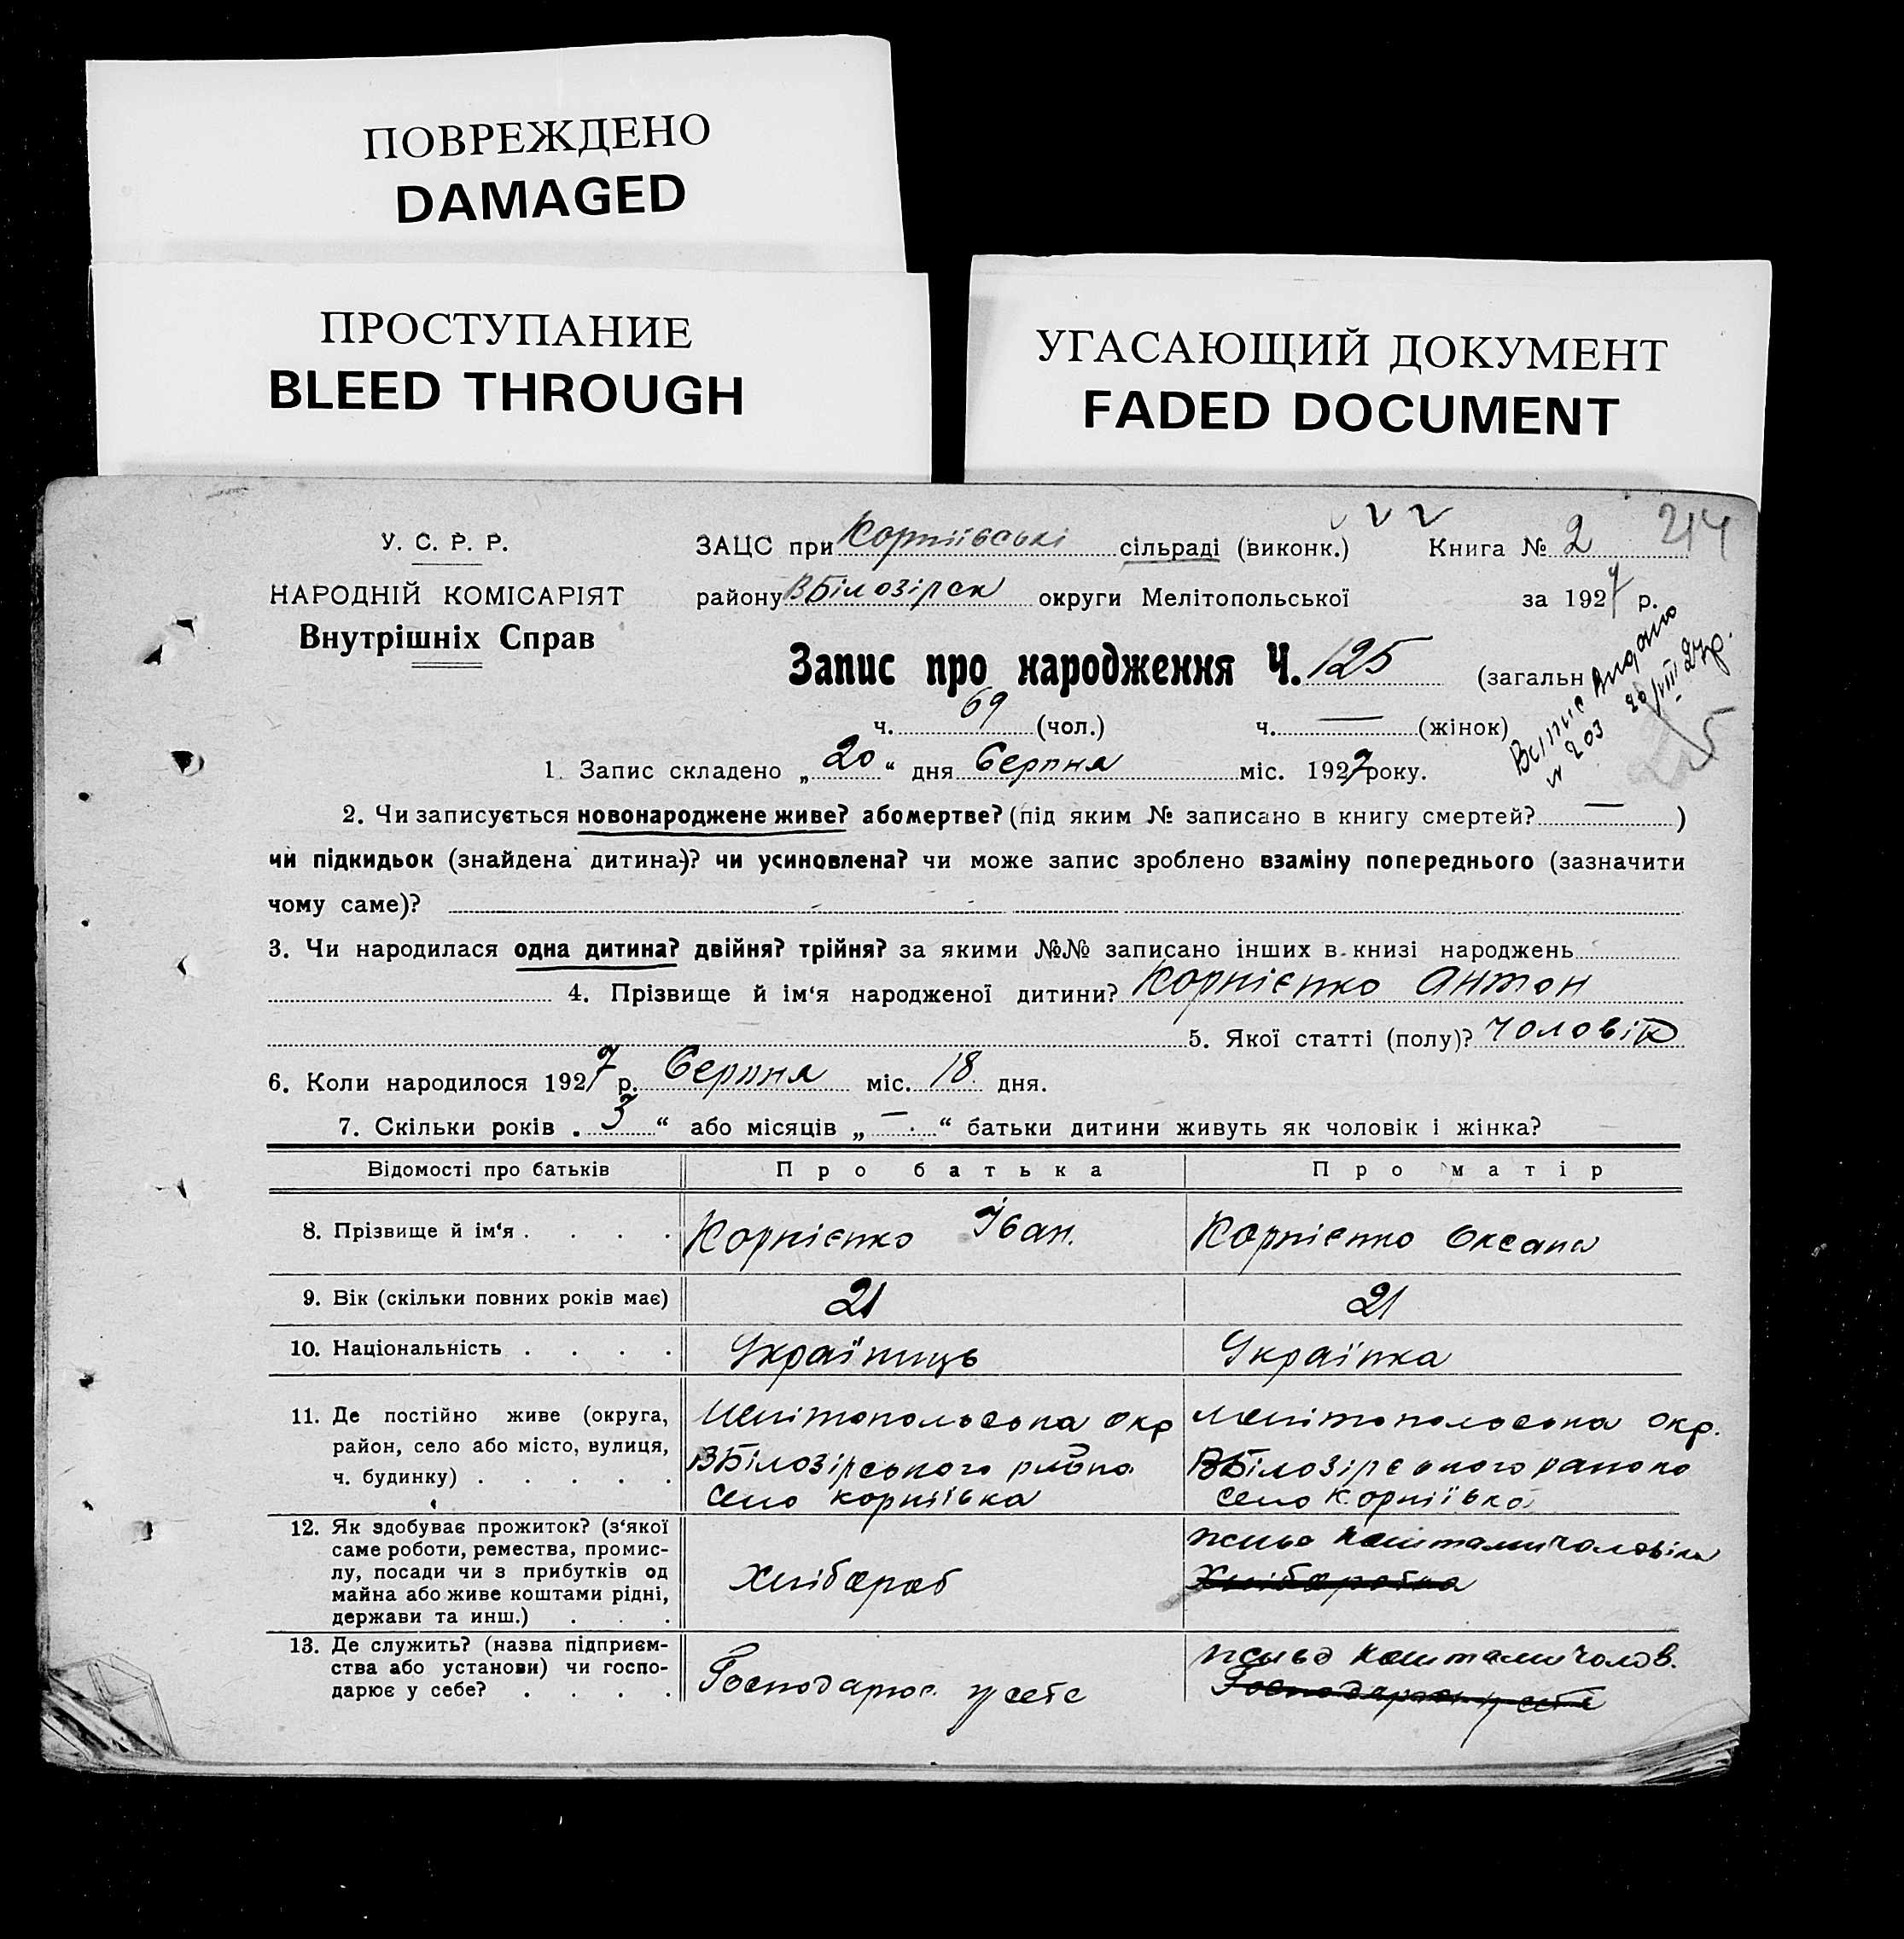 ПОВРЕЖДЕНО
DAMAGED
ПРОСТУПАНИЕ
BLEED THROUGH
УГАСАЮЩИЙ ДОКУМЕНТ
FADED DOCUMENT
У. С. Р. Р.
НАРОДНІЙ КОМІСАРІЯТ
Внутрішніх Справ
ЗАЦС при Корніївські сільраді (виконк.) Книга № 2 214
району ВБілозірск округи Мелітопольської за 1927 р.
Запис про народження Ч. 125 (загальн
Випис видано
№ 203 20/VIII 27р.
ч. 69 (чол.) ч. — (жінок)
1. Запис складено „20“ дня Серпня міс. 1927 року.
2. Чи записується новонароджене живе? або мертве? (під яким № записано в книгу смертей? — )
чи підкидьок (знайдена дитина)? чи усиновлена? чи може запис зроблено взаміну попереднього (зазначити
чому саме)?
3. Чи народилася одна дитина? двійня? трійня? за якими №№ записано інших в книзі народжень
4. Прізвище й ім‘я народженої дитини? Корнієнко Антон
5. Якої статті (полу)? Чоловік
6. Коли народилося 1927 р. Серпня міс. 18 дня.
7. Скільки років „ 3 “ або місяців „ — “ батьки дитини живуть як чоловік і жінка?
Відомості про батьків Про батька Про матір
8. Прізвище й ім‘я . . . . Корнієнко Іван. Корнієнко Оксана
9. Вік (скільки повних років має) 21 21
10. Національність . . . . Україниць Українка
11. Де постійно живе (округа,
район, село або місто, вулиця,
ч. будинку) . . . . .
Мелітопольська окр
ВБілозірського району
село Корніївка
Мелітопольська окр.
ВБілозірского району
село Корніївка
12. Як здобуває прожиток? (з‘якої
саме роботи, ремества, промис-
лу, посади чи з прибутків од
майна або живе коштами рідні,
держави та инш.) . . .
Хлібороб
живе коштами чоловіка
Хліборобка
13. Де служить? (назва підприєм-
ства або установи) чи госпо-
дарює у себе? . . . .
Господарює у себе
живе коштами чолов.
Господарює у себе